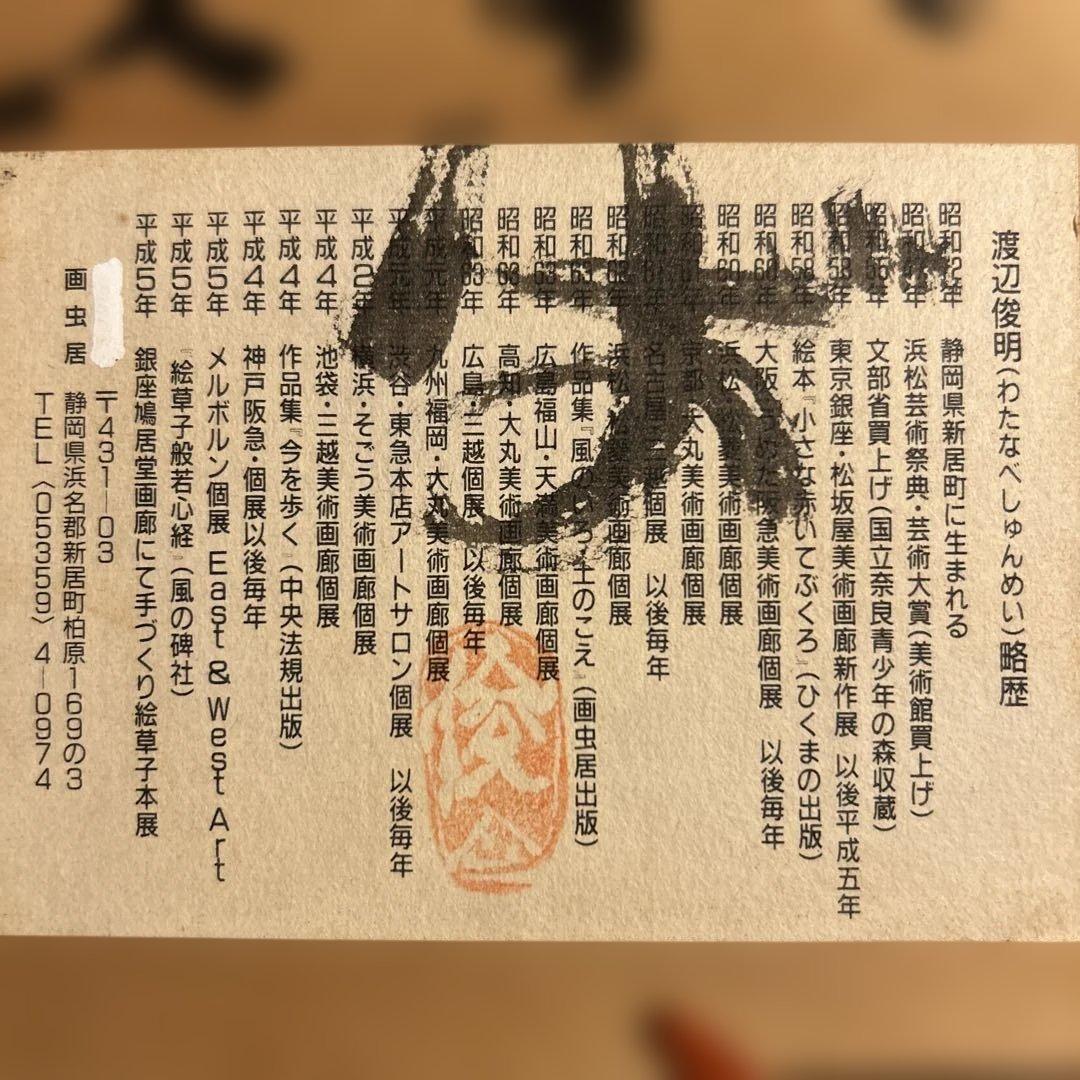 渡辺俊明(わたなべしゅんめい)略歴
昭和12年 静岡県新居町に生まれる
浜松芸術祭典・芸術大賞(美術館買上げ)
文部省買上げ(国立奈良青少年の森収蔵)
昭和58年 東京銀座・松坂屋美術画廊新作展 以後平成五年
昭和58年 絵本『小さな赤いてぶくろ』(ひくまの出版)
昭和60年 大阪うめだ阪急美術画廊個展 以後毎年
昭和60年 浜松・松菱美術画廊個展
京都・大丸美術画廊個展
昭和61年 名古屋・三越個展 以後毎年
昭和62年 浜松・松菱美術画廊個展
昭和63年 作品集『風のいろ土のこえ』(画虫居出版)
昭和63年 広島福山・天満美術画廊個展
昭和63年 高知・大丸美術画廊個展
昭和63年 広島・三越個展 以後毎年
平成元年 九州福岡・大丸美術画廊個展
平成元年 渋谷・東急本店アートサロン個展 以後毎年
平成2年 横浜・そごう美術画廊個展
平成4年 池袋・三越美術画廊個展
平成4年 作品集『今を歩く』(中央法規出版)
平成4年 神戸阪急・個展以後毎年
平成5年 メルボルン個展 East & West Art
平成5年 『絵草子般若心経』(風の碑社)
平成5年 銀座鳩居堂画廊にて手づくり絵草子本展
〒431―03
画虫居 静岡県浜名郡新居町柏原169の3
TEL〈05359〉4―0974